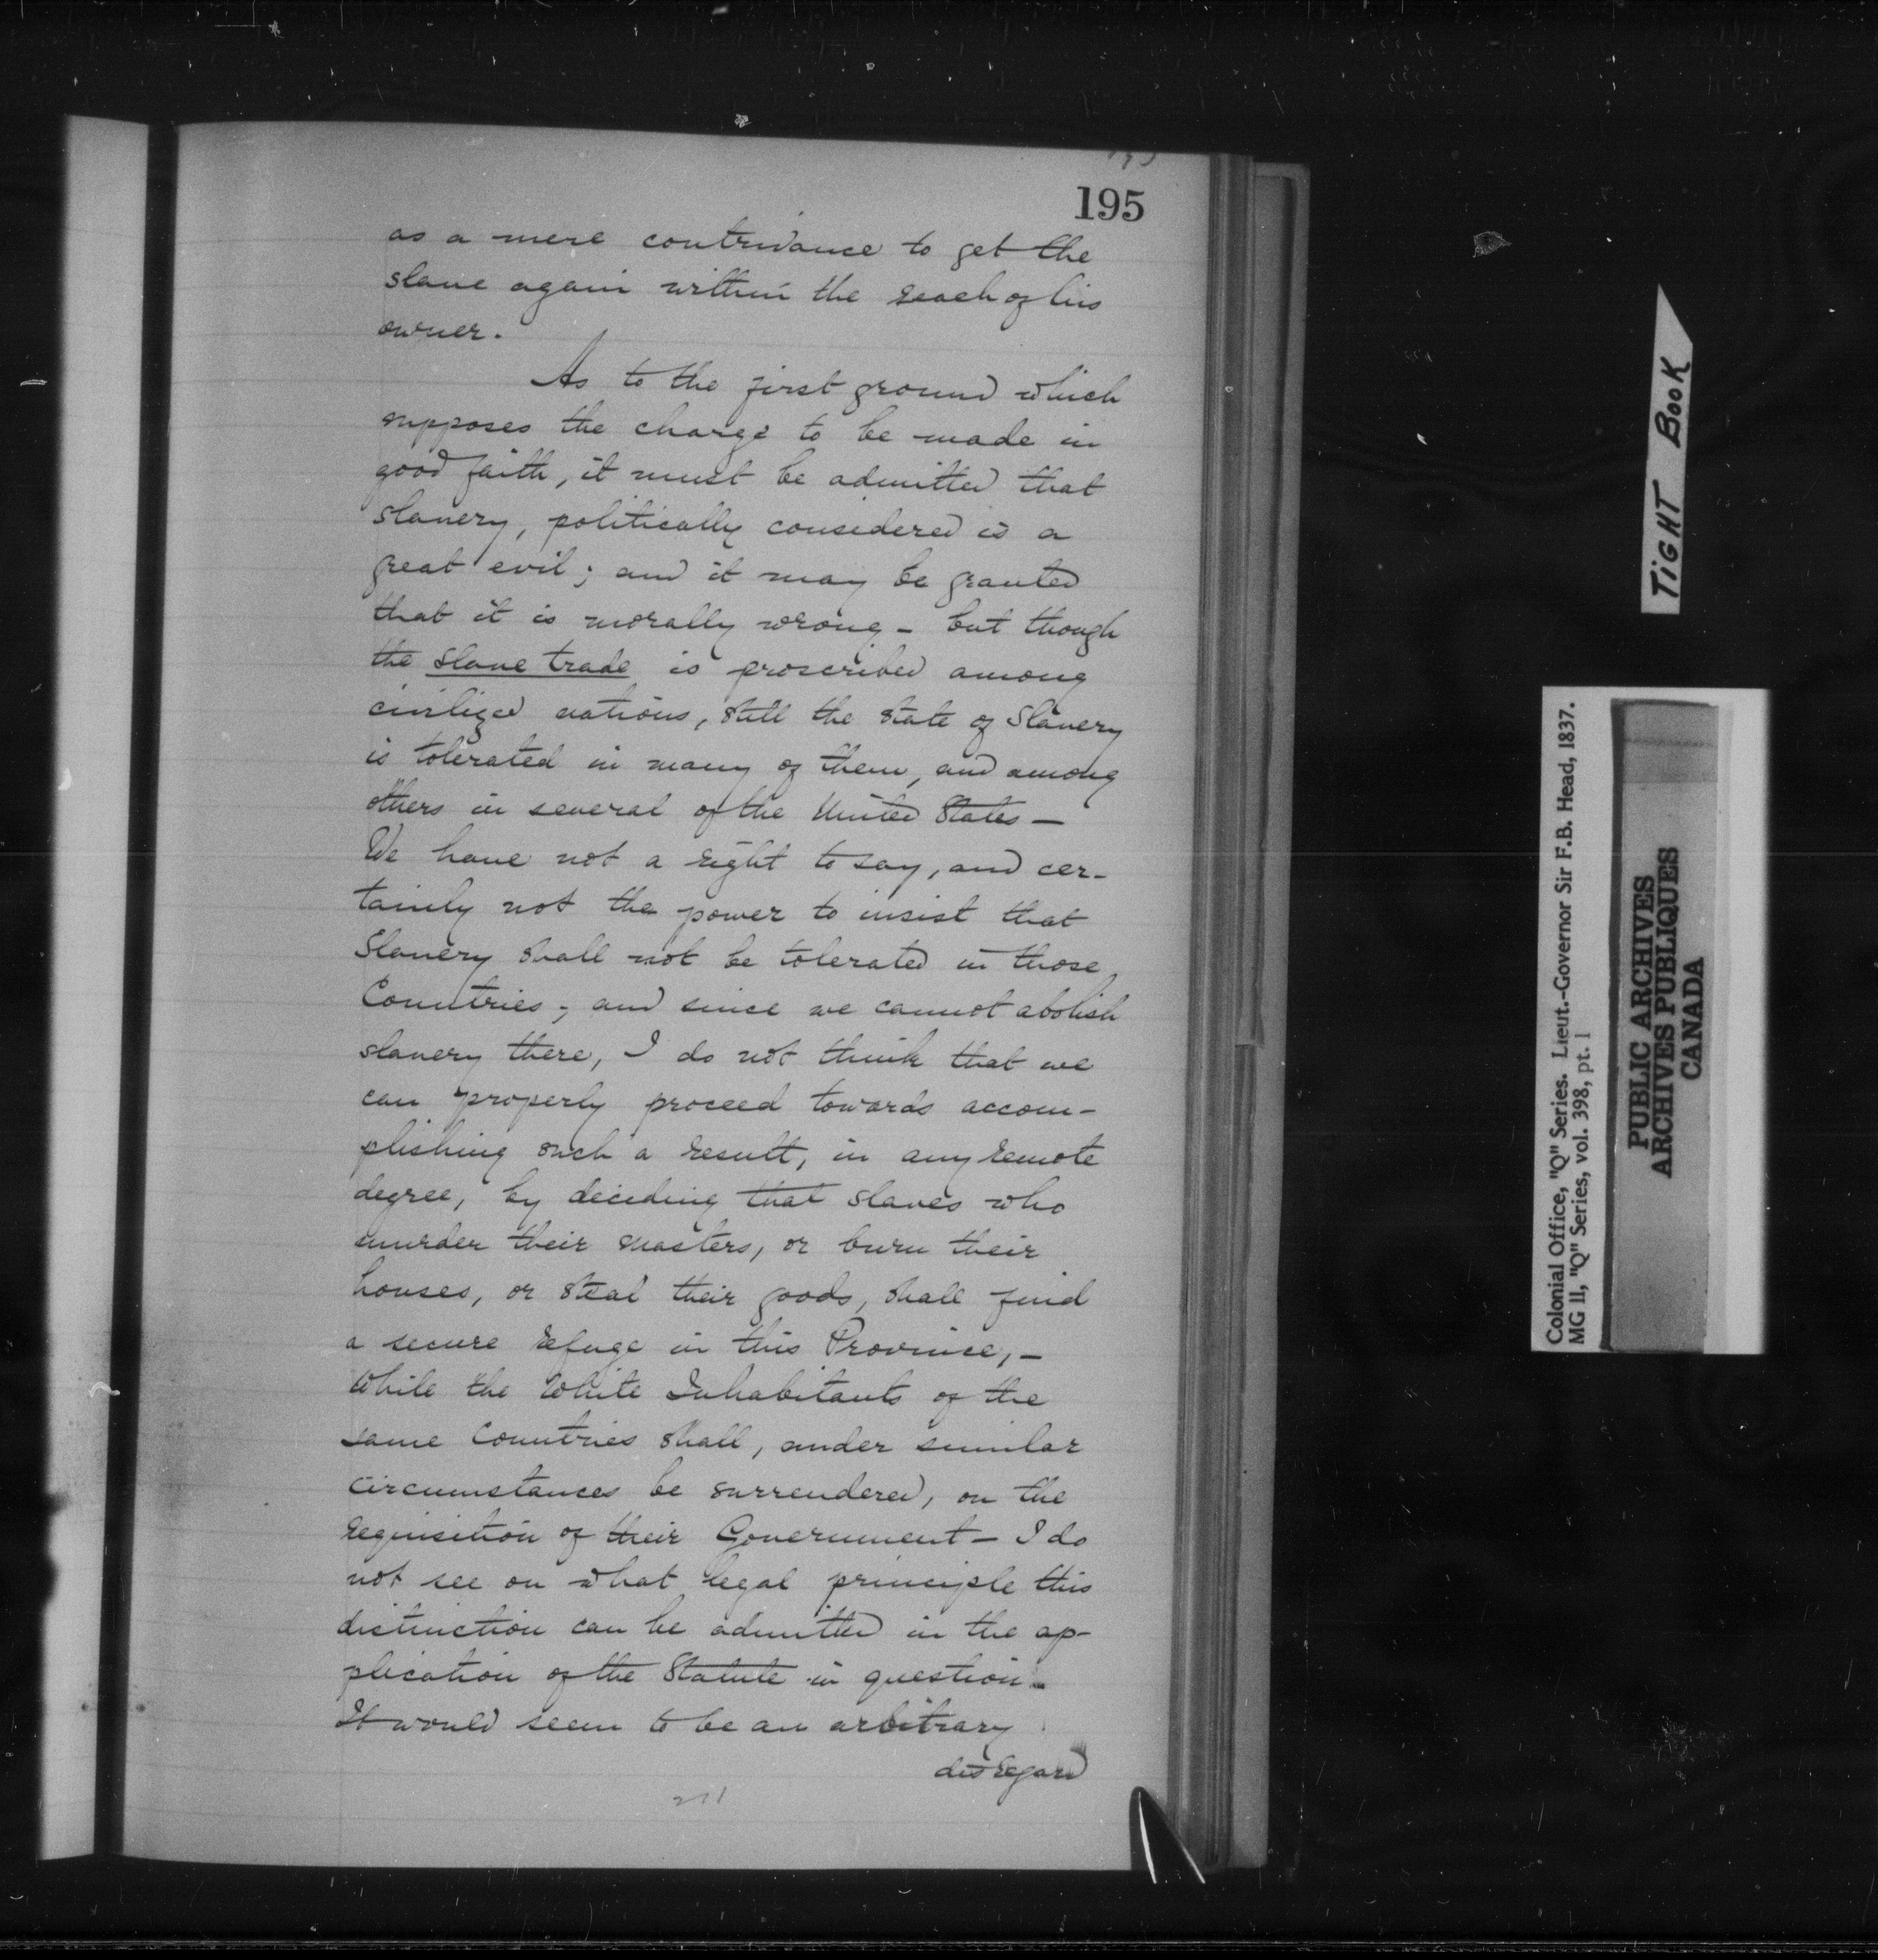 195
as a mere contrivance to get the
slave again within the reach of his
owner.
As to the first ground which
supposes the charge to be made in
good faith, it must be admitted that
slavery, politically considered is a
great evil; and it may be granted
that it is morally wrong - but though
the slave trade is proscribed among
civilized nations, still the state of Slavery
is tolerated in many of them, and among
others in several of the United States -
We have not a right to say, and cer-
tainly not the power to insist that
Slavery shall not be tolerated in those
Countries; and since we cannot abolish
slavery there, I do not think that we
can properly proceed towards accom-
plishing such a result, in any remote
degree, by deciding that slaves who
murder their masters, or burn their
houses, or steal their goods, shall find
a secure refuge in this Province, -
while the White Inhabitants of the
same Countries shall, under similar
circumstances be surrendered, on the
requisition of their Government - I do
not see on what legal principle this
distinction can be admitted in the ap-
plication of the Statute in question.
It would seem to be an arbitrary
disregard
211
TIGHT BOOK
Colonial Office, "Q" Series. Lieut.-Governor Sir F.B. Head, 1837.
MG 11, "Q" Series, vol. 398, pt. 1
PUBLIC ARCHIVES
ARCHIVES PUBLIQUES
CANADA